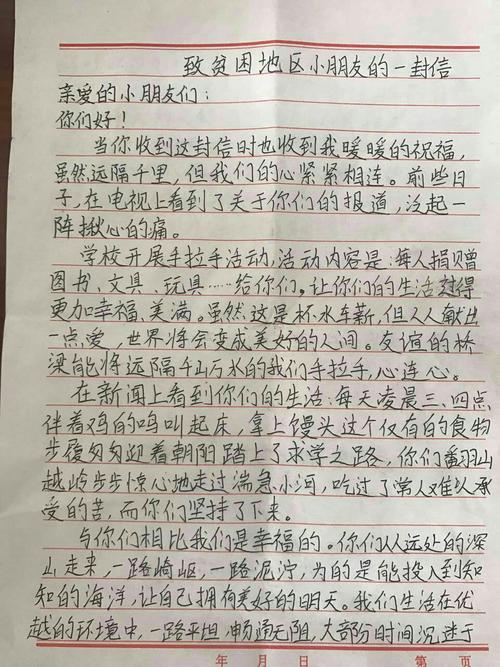 致贫困地区小朋友的一封信
亲爱的小朋友们：
你们好！
当你收到这封信时也收到我暖暖的祝福，
虽然远隔千里，但我们的心紧紧相连。前些日
子，在电视上看到了关于你们的报道，泛起一
阵揪心的痛。
学校开展手拉手活动，活动内容是：每人捐赠
图书、文具、玩具……给你们。让你们的生活过得
更加幸福、美满。虽然这是杯水车薪，但人人献出
一点爱，世界将会变成美好的人间。友谊的桥
梁能将远隔千山万水的我们手拉手，心连心。
在新闻上看到你们的生活：每天凌晨三、四点
伴着鸡的鸣叫起床，拿上馒头这个仅有的食物
步履匆匆迎着朝阳踏上了求学之路，你们翻山
越岭步步惊心地走过湍急小河，吃过了常人难以承
受的苦，而你们坚持了下来。
与你们相比我们是幸福的。你们从远处的深
山走来，一路崎岖，一路泥泞，为的是能投入到知
知的海洋，让自己拥有美好的明天。我们生活在优
越的环境中，一路平坦，畅通无阻，大部分时间沉迷于
年 月 日 第 页